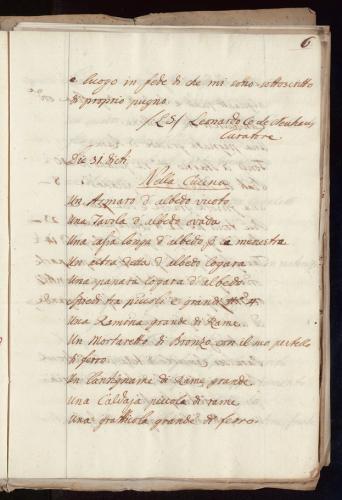 6
e luogo in fede di che mi sono sottoscritto
di proprio pugno.
/LS/ Leonardo Co: de
Curatore
Die 31. dicti
Nella Cucina
Un Armaro d'albedo vuoto
Una Tavola d'albedo ovada
Una longa d'albedo p la minestra
Un altra detta d'albedo logara
Una panara logara d'albedo
Spiedi tra piccoli e grandi No. 4.
Una Ramina grande di Rame
Un Mortaretto di Bronzo con il suo pestello
di ferro.
Un di Rame grande
Una Caldaja piccola di rame
Una gratticola grande di ferro.